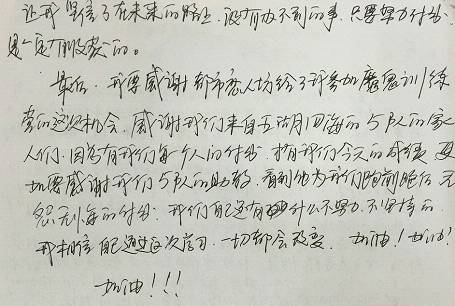 让我坚信了在未来的路上，没有办不到的事，只要努力付出，
是一定有收获的。
最后，我要感谢都市丽人坊给了我参加魔鬼训练
营的这次机会，感谢我们来自五湖四海的5队的家
人们，因为有我们每个人的付出，才有我们今天的成绩，更
加要感谢我们5队的助教，看到他为我们跑前跑后无
怨无悔的付出，我们自己还有什么不努力，不坚持的
我相信自己通过这次学习，一切都会改变。加油！加油！
加油！！！